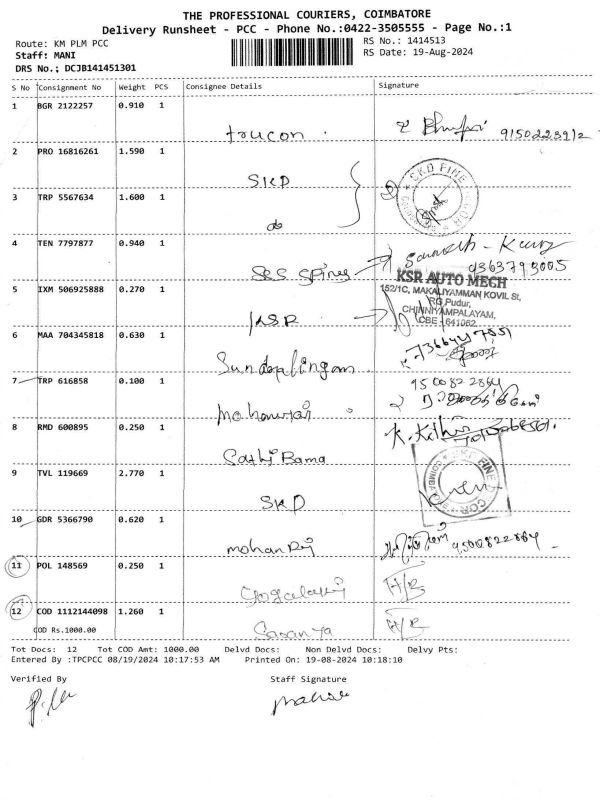 THE PROFESSIONAL COURIERS, COIMBATORE
Delivery Runsheet - PCC - Phone No.:0422-3505555 - Page No.:1
Route: KM PLM PCC
RS No.: 1414513
Staff: MANI
RS Date: 19-Aug-2024
DRS No.; DCJB141451301
S No Consignment No Weight PCS Consignee Details Signature
1 BGR 2122257 0.910 1
trucon
2 PRO 16816261 1.590 1
SKD
SKD FINE
3 TRP 5567634 1.600 1
do
4 TEN 7797877 0.940 1
9363793005
KSR AUTO MECH
5 IXM 506925888 0.270 1
152/1C, MAKALIYAMMAN KOVIL St,
RG Pudur,
CHINNIYAMPALAYAM,
KSR
CBE - 641062
6 MAA 704345818 0.630 1
Sundaralingam
7 TRP 616858 0.100 1
9500822864
8 RMD 600895 0.250 1
Sathi Bama
9 TVL 119669 2.770 1
SKD FINE
SKD
10 GDR 5366790 0.620 1
Mohan Raj 9500822864
11 POL 148569 0.250 1
12 COD 1112144098 1.260 1
COD Rs.1000.00
Saranya
Tot Docs: 12 Tot COD Amt: 1000.00 Delvd Docs: Non Delvd Docs: Delvy Pts:
Entered By :TPCPCC 08/19/2024 10:17:53 AM Printed On: 19-08-2024 10:18:10
Verified By Staff Signature